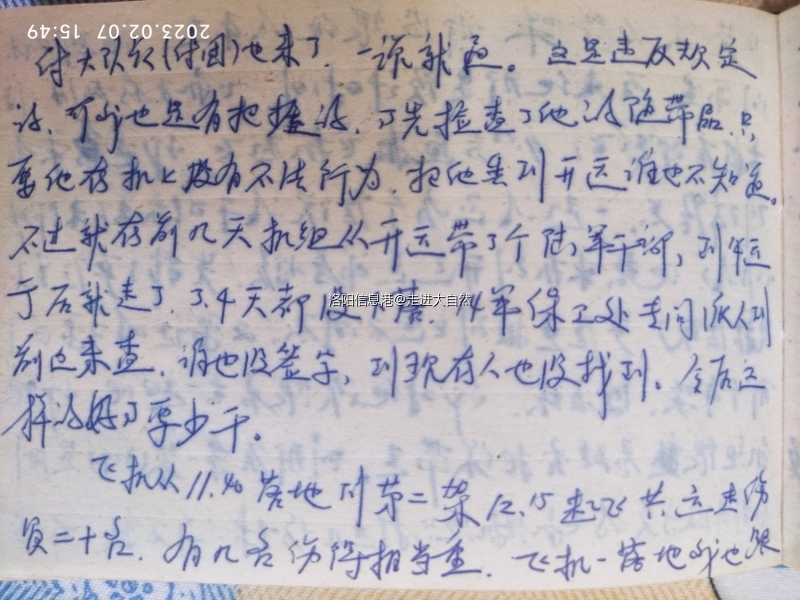 2023.02.07 15:49
付大队长(付团)也来了。一说就通。这是违反规定
的,可我也是有把握的,我先检查了他的随带品,只
要他在机上没有不法行为,把他丢到开远谁也不知道。
不过就在前几天机组从开远带了个陆军干部,到
于后就走了,3.4天都没,14军保卫处专门派人到
前边来查,谁也没签字,到现在人也没找到。今后这
样的好事要少干。
飞机从11.40落地到第二架12.15起飞共运走伤
员二十名,有几名伤得相当重,飞机一落地我也
洛阳信息港@走进大自然